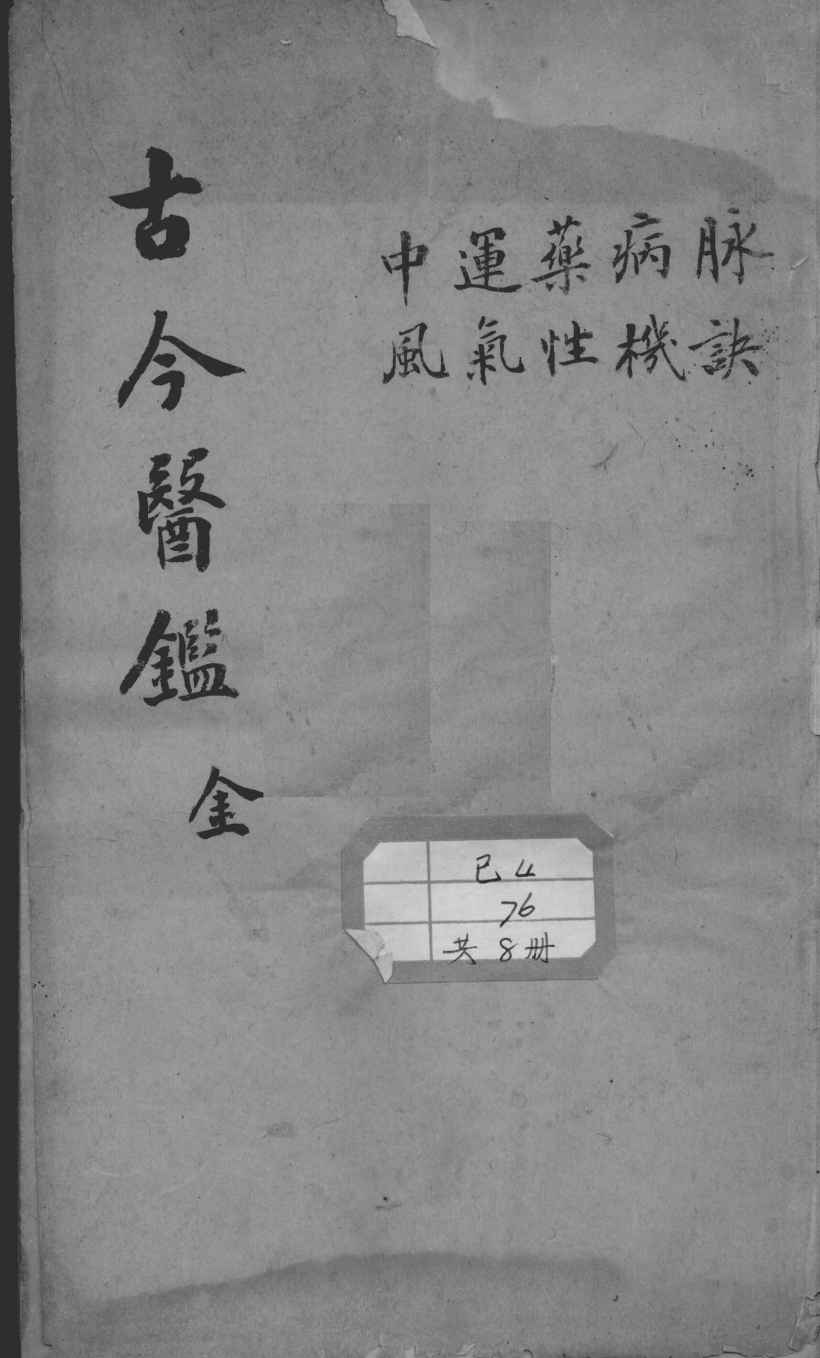 脉訣
病機
藥性
運氣
中風
古今醫鑑 金
巳4
76
共8冊